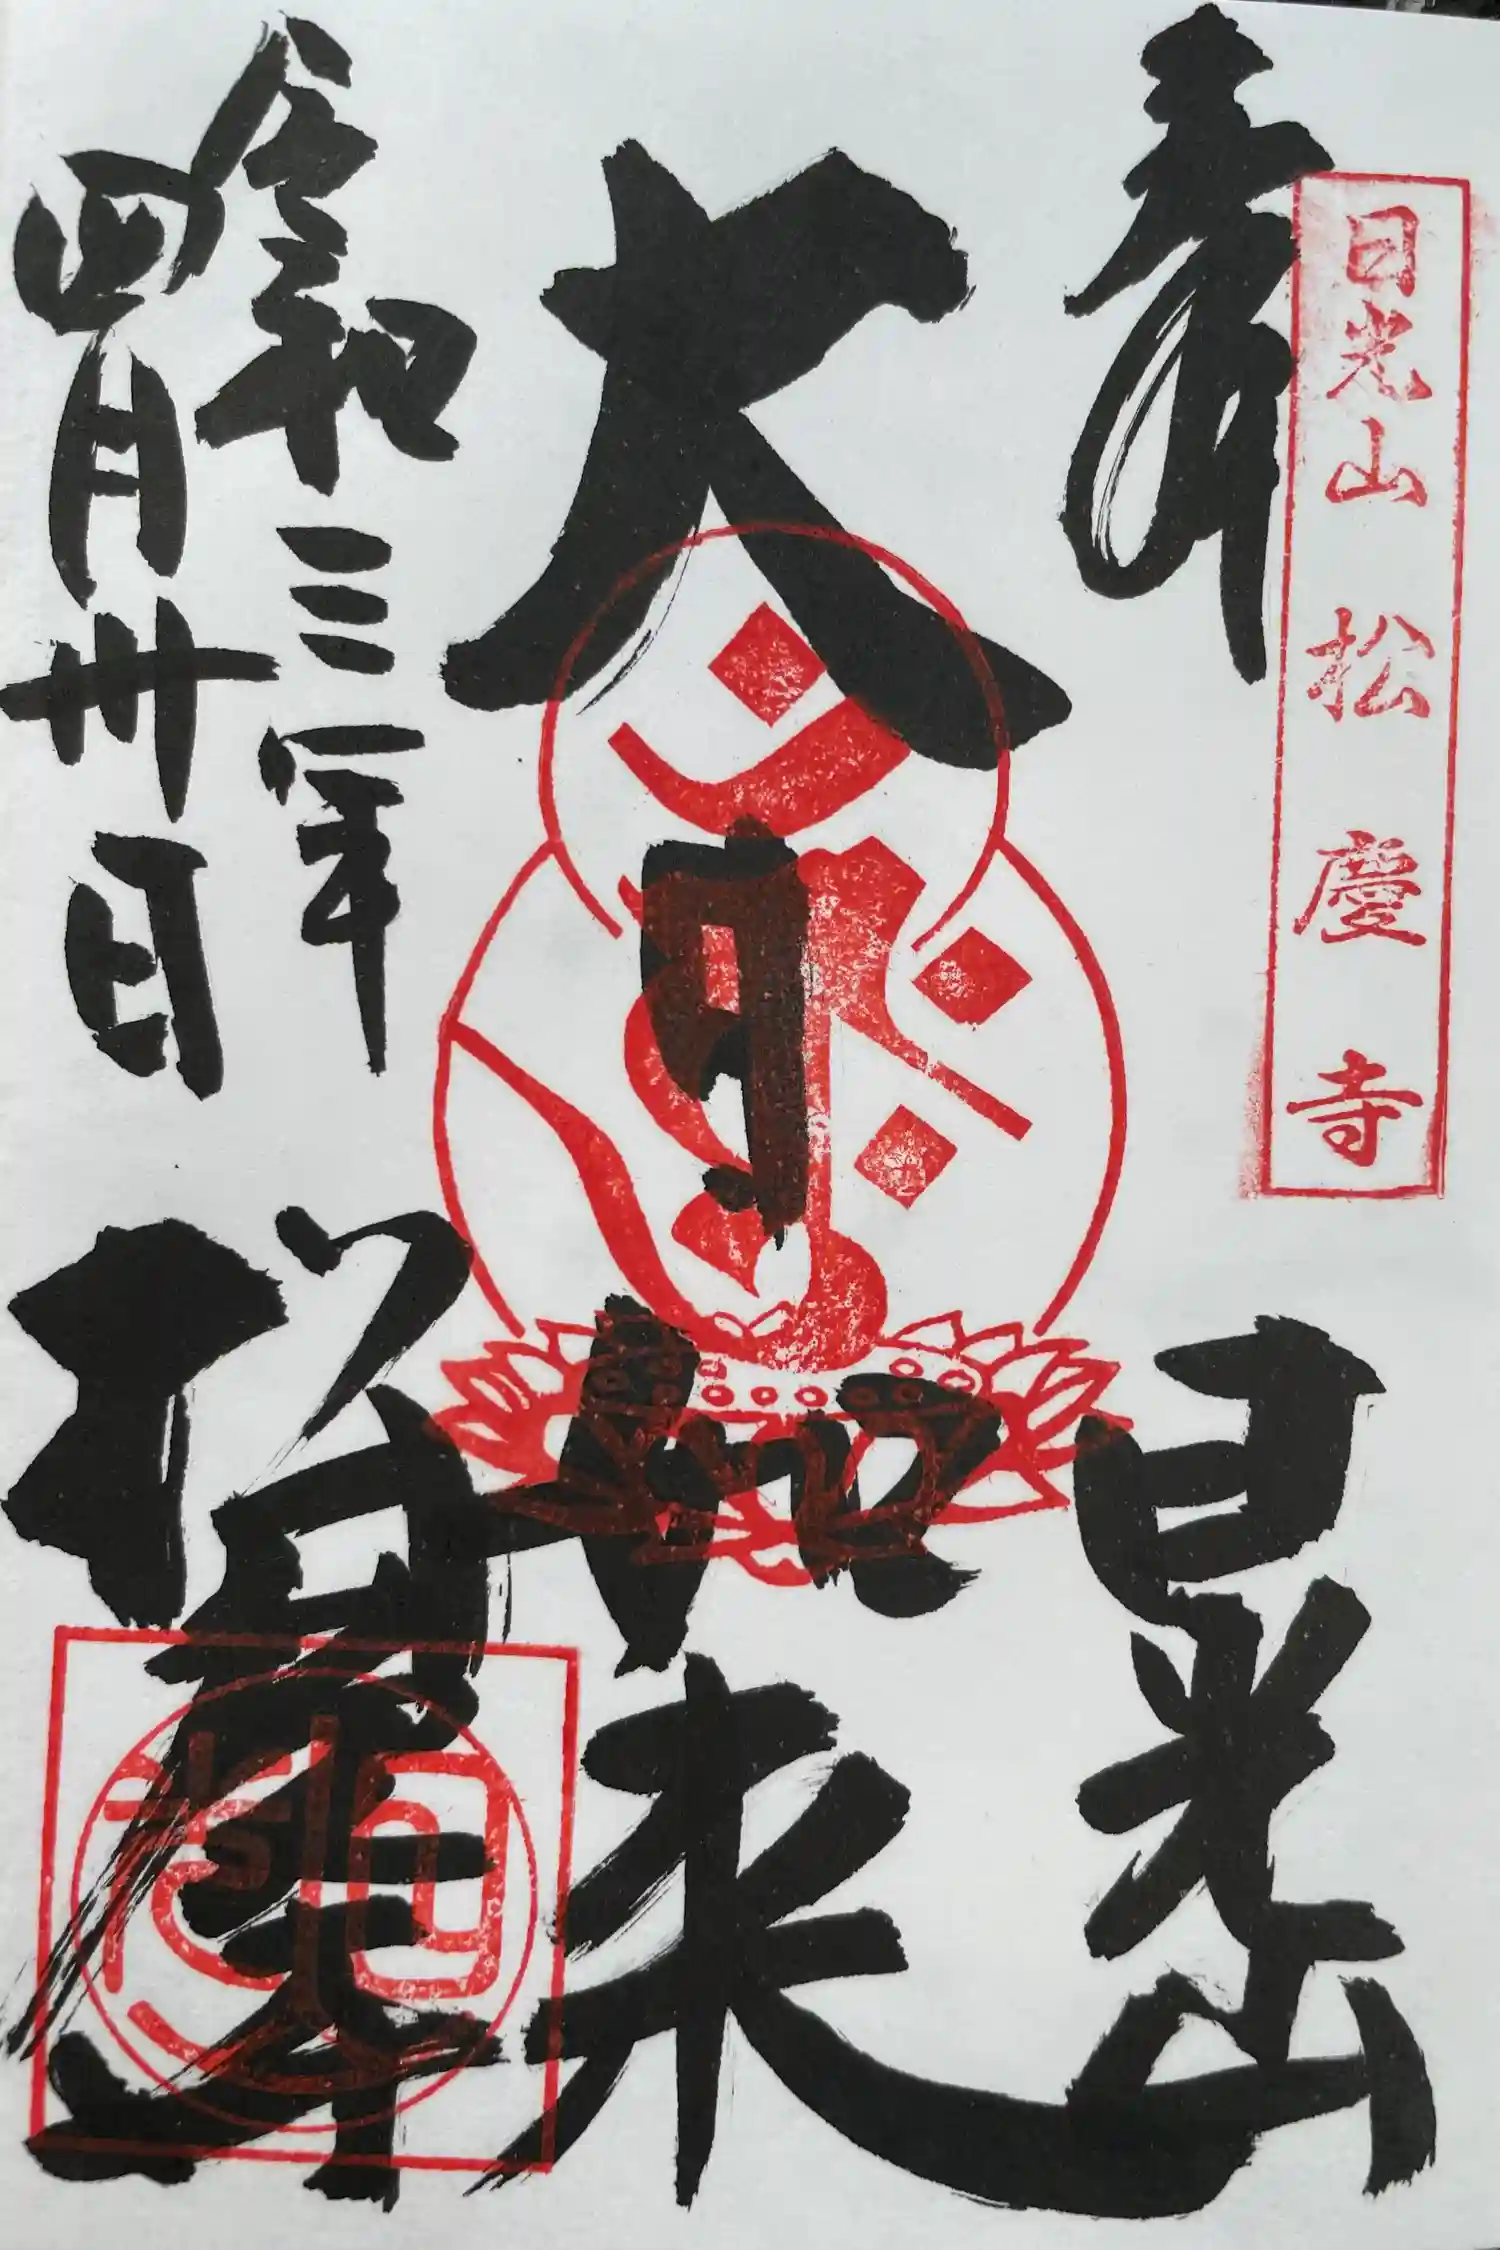 奉拝
日光山 松慶寺
日光山
大日如来
令和三年
四月卅日
松慶寺